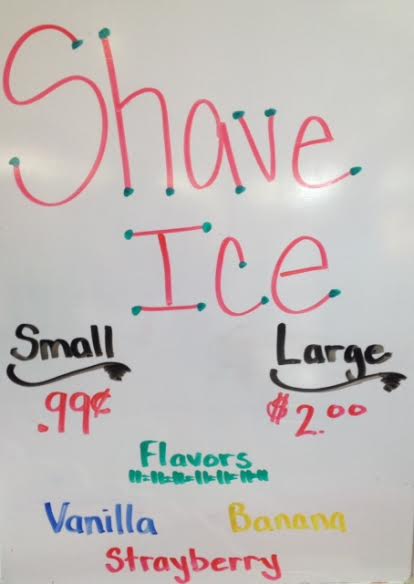 Shave
Ice
Small Large
.99¢ $2.00
Flavors
Vanilla Banana
Strayberry